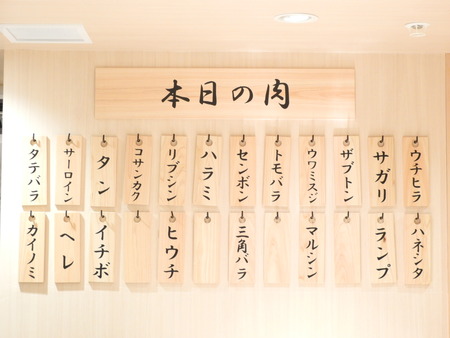 本日の肉
ウチヒラ
サガリ
ザブトン
ウワミスジ
トモバラ
センボン
ハラミ
リブシン
コサンカク
タン
サーロイン
タテバラ
ハネシタ
ランプ
マルシン
三角バラ
ヒウチ
イチボ
ヘレ
カイノミ